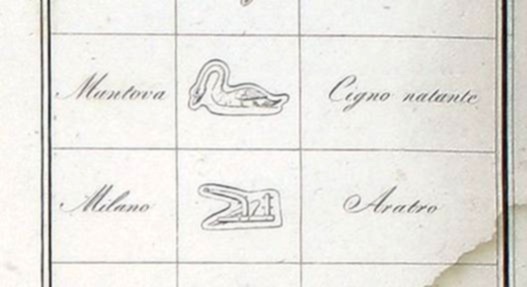 Mantova Cigno natante
Milano Aratro